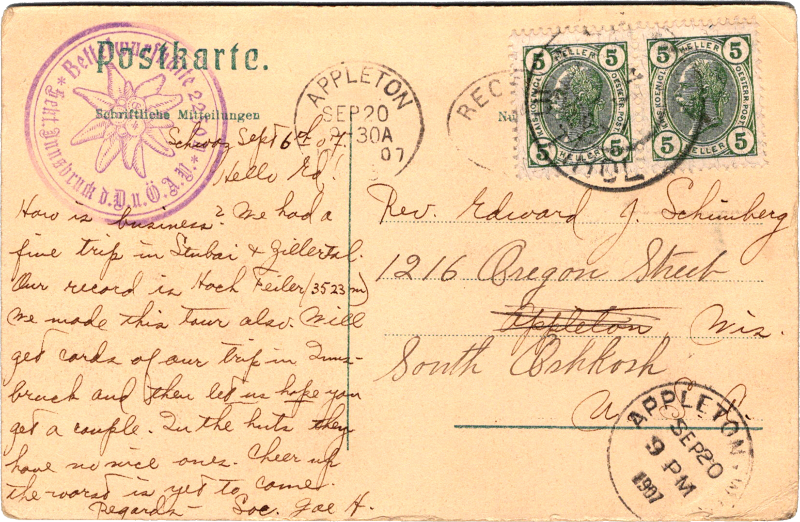 Postkarte.
Schriftliche Mitteilungen
Sekt. Innsbruck d. D. u. Ö. A. V.
APPLETON
SEP 20
30 A
07
REC
5 HELLER 5
5 HELLER 5
5 HELLER 5
5 HELLER 5
Schwaz Sept 6th 07.
Hello Ed!
How is business? We had a
fine trip in Stubai & Zillertal.
Our record is Hoch Feiler (3523 m)
We made this tour also. Will
get cards of our trip in Inns-
bruck and then let us hope you
get a couple. In the huts they
have no nice ones. Cheer up
the worst is yet to come.
Regards - Soc. Joe H.
Rev. Edward J. Schimberg
1216 Oregon Street
Appleton, Wis.
South Oshkosh
APPLETON
SEP 20
9 PM
1907